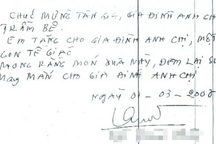 CHÚC MỪNG TÂN GIA, GIA ĐÌNH ANH CHỊ
TRẦM BÊ.
EM TẶNG CHO GIA ĐÌNH ANH CHỊ, MỘT
CON TÊ GIÁC
MONG RẰNG MÓN QUÀ NÀY, ĐEM LẠI SỰ
MAY MẮN CHO GIA ĐÌNH ANH CHỊ
NGÀY 01-03-2008